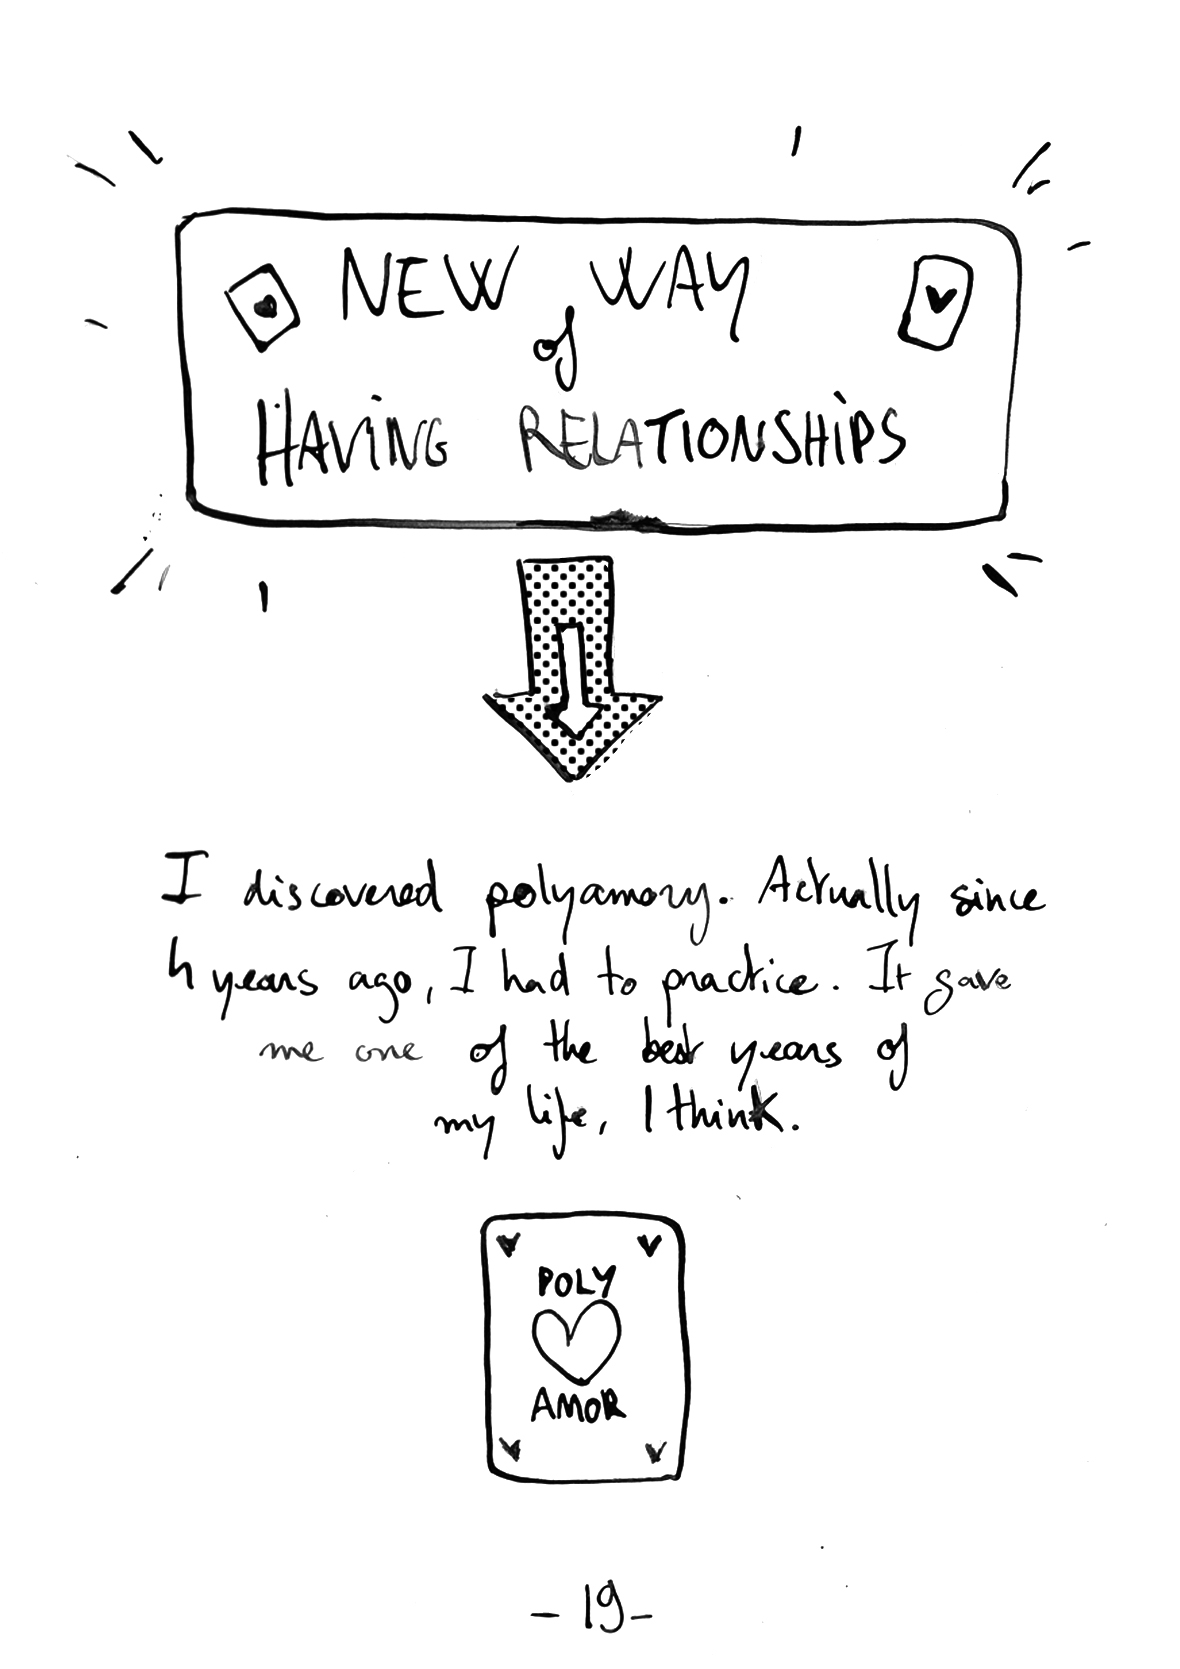 NEW WAY
of
HAViNG RELATIONSHiPS
I discovered polyamory. Actually since
4 years ago, I had to practice. It gave
me one of the best years of
my life, I think.
POLY
AMOR
- 19 -